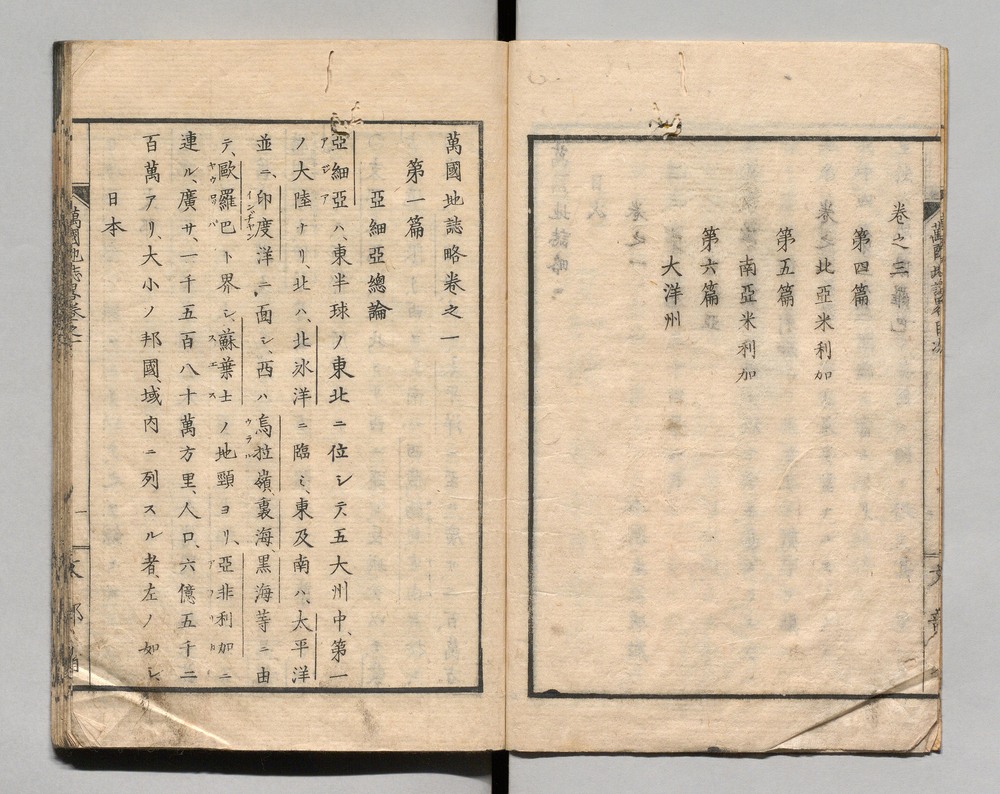 卷之三
第四篇
北亞米利加
第五篇
南亞米利加
第六篇
大洋州
萬國地誌略卷之一
第一篇
亞細亞總論
亞細亞ハ、東半球ノ東北ニ位シテ五大州中、第一
アジア
ノ大陸ナリ、北ハ、北氷洋ニ臨ミ、東及南ハ、太平洋
並ニ、印度洋ニ面シ、西ハ烏拉嶺、裏海、黒海等ニ由
インヂヤン
ウラル
テ、歐羅巴ト界シ、蘇葉士ノ地頸ヨリ、亞非利加ニ
ヤウロパ
スエス
アフリカ
連ル、廣サ、一千五百八十萬方里、人口、六億五千二
百萬アリ、大小ノ邦國、域内ニ列スル者、左ノ如シ、
日本